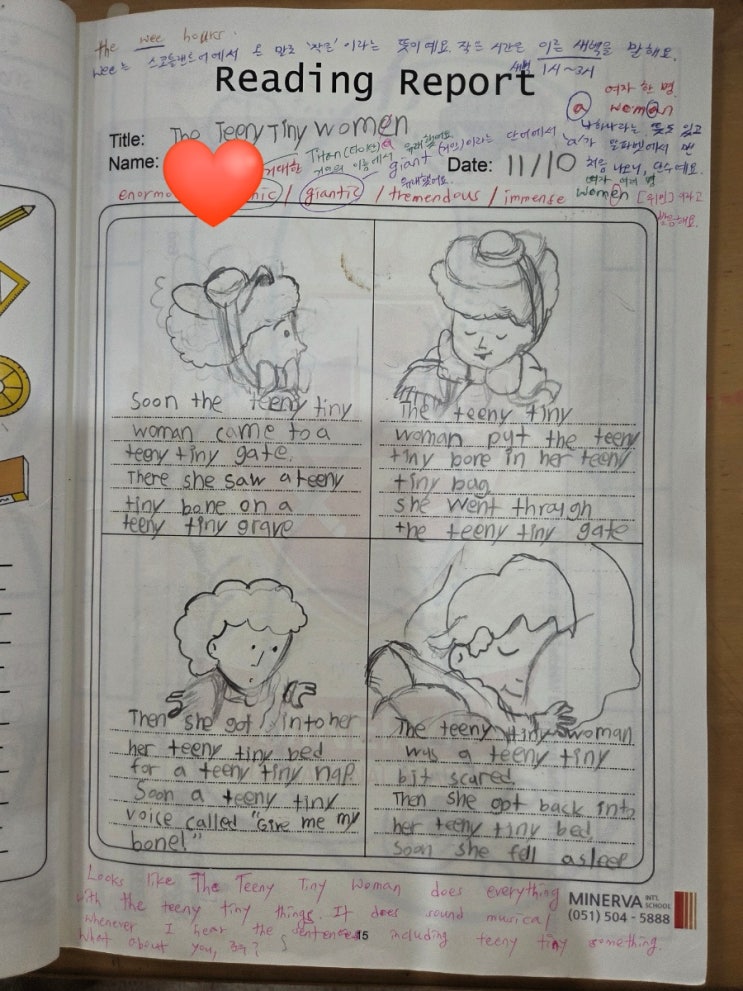 the wee hours.
wee는 스코틀랜드어에서 온 말로 '작은'이라는 뜻이예요. 작은 시간은 이른 새벽을 말해요.
새벽 1시~3시
Reading Report
여자 한 명
a woman
Title: The Teeny Tiny women
Name:
거대한
Date: 11/10
giant (거인)이라는 단어에서
유래했어요.
처음 나오니, 단수예요.
여자 여러 명
/ giantic / tremendous / immense women [위민]이라고
발음해요.
Soon the teeny tiny
woman came to a
teeny tiny gate.
There she saw a teeny
tiny bone on a
teeny tiny grave
The teeny tiny
woman pyt the teeny
tiny bore in her teeny
tiny bag
she went thraugh
the teeny tiny gate
Then she got into her
her teeny tiny bed
for a teeny tiny nap.
Soon a teeny tiny
voice called "Give me my
bone!"
The teeny tiny woman
was a teeny tiny
bit scared.
Then she got back into
her teeny tiny bed.
Soon she fell asleep
Looks like The Teeny Tiny Woman does everything
with the teeny tiny things. It does sound musical
whenever I hear the sentences including teeny tiny something.
What about you,
MINERVA INT'L SCHOOL
(051) 504 - 5888
15